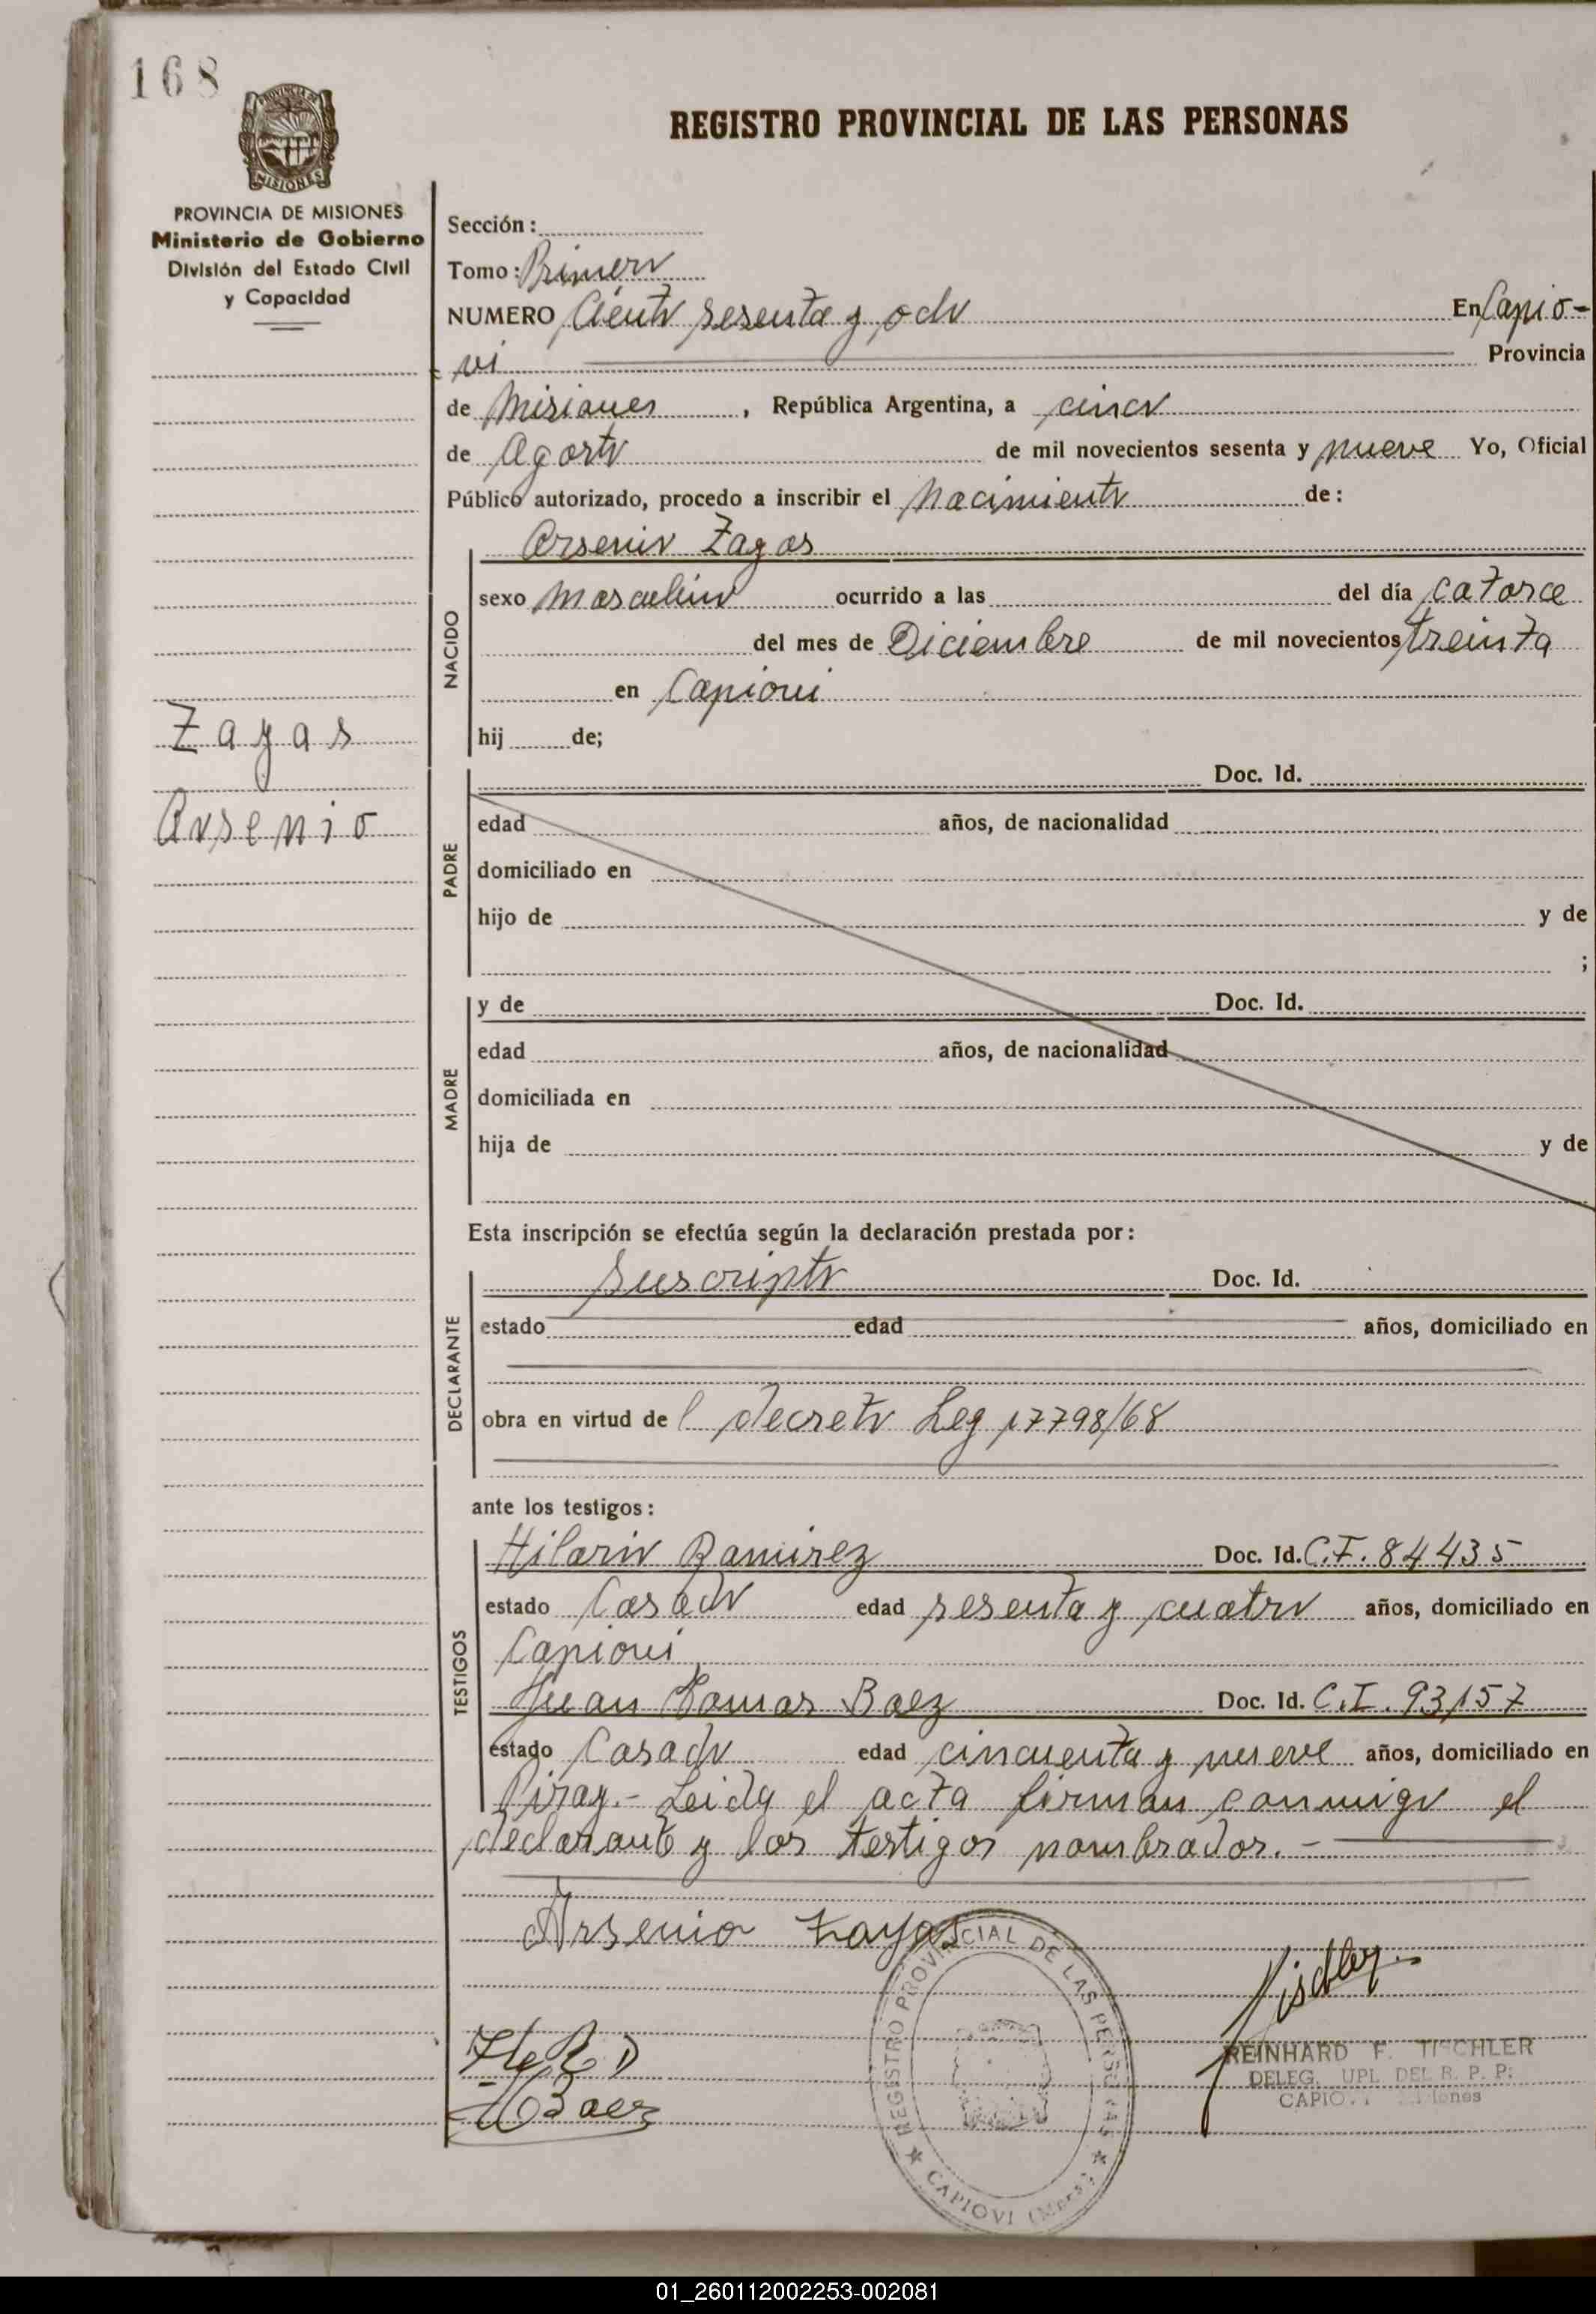 168
REGISTRO PROVINCIAL DE LAS PERSONAS
PROVINCIA DE MISIONES
MISIONES
Ministerio de Gobierno
División del Estado Civil
y Capacidad
Sección:
Tomo: Primero
NUMERO Ciento sesenta y ocho En Capio-
vi Provincia
de Misiones, República Argentina, a cinco
de Agosto de mil novecientos sesenta y nueve Yo, Oficial
Público autorizado, procedo a inscribir el Nacimiento de:
NACIDO
Arsenio Zayas
sexo Masculino ocurrido a las del día catorce
del mes de Diciembre de mil novecientos treinta
en Capiovi
hij de;
Zayas
Arsenio
PADRE
Doc. Id.
edad años, de nacionalidad
domiciliado en
hijo de y de
;
MADRE
y de Doc. Id.
edad años, de nacionalidad
domiciliada en
hija de y de
Esta inscripción se efectúa según la declaración prestada por:
DECLARANTE
suscripto Doc. Id.
estado edad años, domiciliado en
obra en virtud de l decreto Ley 17798/68
ante los testigos:
TESTIGOS
Hilario Ramirez Doc. Id. C.I. 84435
estado Casado edad sesenta y cuatro años, domiciliado en
Capiovi
Juan Tomas Baez Doc. Id. C.I. 93157
estado Casado edad cincuenta y nueve años, domiciliado en
Piray.- Leida el acta firman conmigo el
declarante y los testigos nombrados.-
Arsenio Zayas
REGISTRO PROVINCIAL DE LAS PERSONAS
CAPIOVI (Mnes.)
Tischler
REINHARD F. TISCHLER
DELEG. UPL. DEL R. P. P.
CAPIO.. iones
Baez
01_260112002253-002081